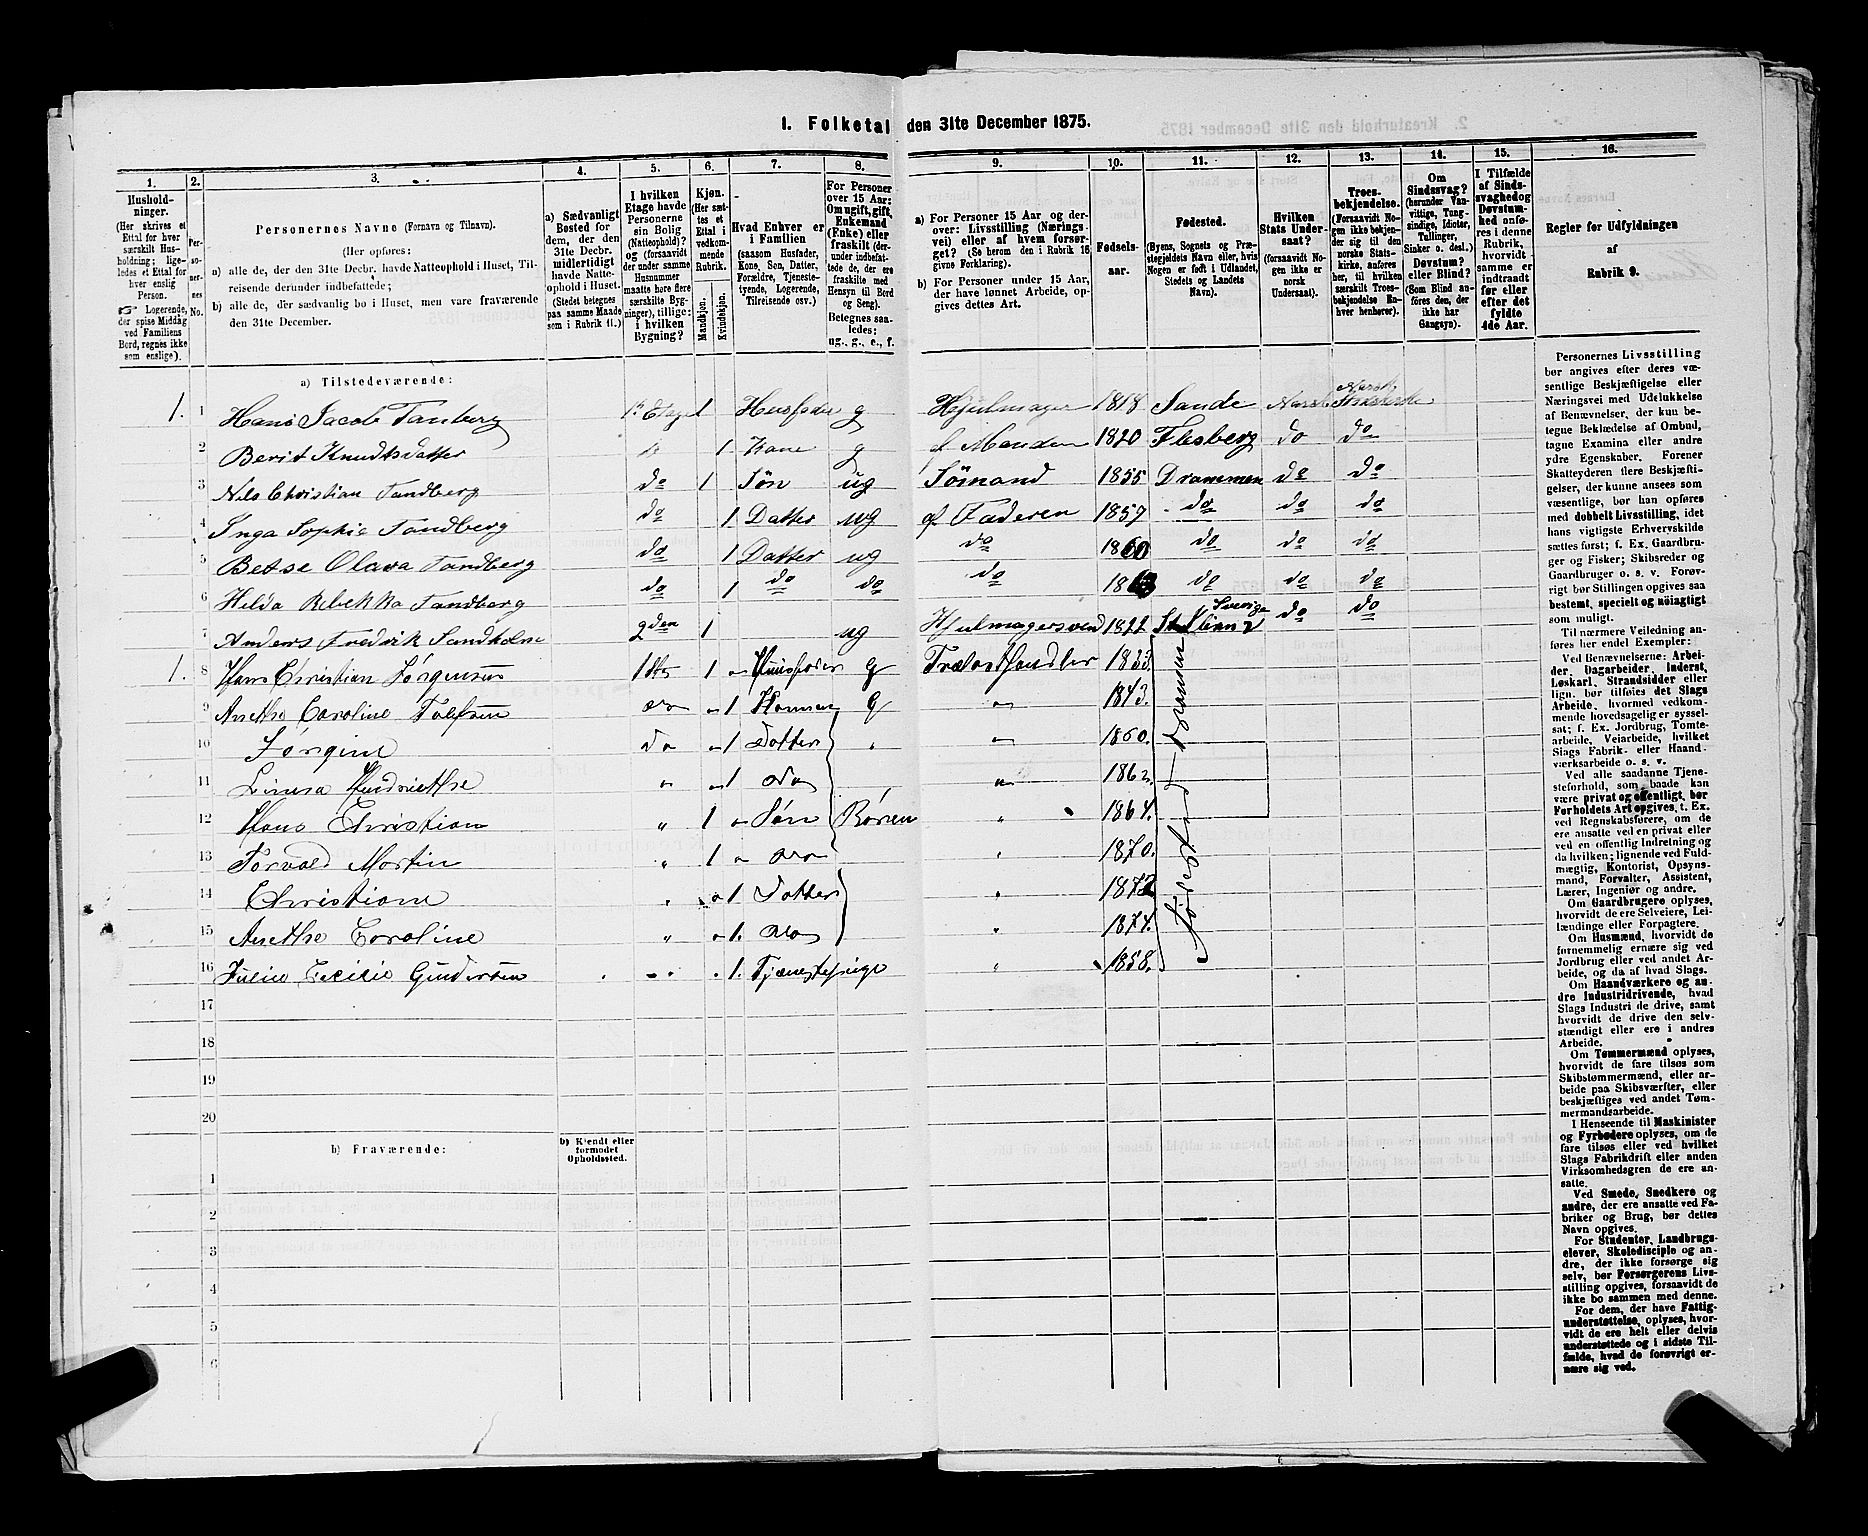 1. Folketal den 31te December 1875.
1.
2.
3.
4.
5.
6.
7.
8.
9.
10.
11.
12.
13.
14.
15.
16.
Hushold-
ninger.
(Her skrives et
Ettal for hver
særskilt Hus-
holdning; lige-
ledes et Ettal for
hver enslig
Person.
Logerende,
der spise Middag
ved Familiens
Bord, regnes ikke
som enslige).
Per-
so-
ner-
nes
No.
Personernes Navne (Fornavn og Tilnavn).
(Her opføres:
a) alle de, der den 31te Decbr. havde Natteophold i Huset, Til-
reisende derunder indbefattede;
b) alle de, der sædvanlig bo i Huset, men vare fraværende
den 31te December.
a) Sædvanligt
Bosted for
dem, der den
31te Decbr.
midlertidigt
havde Natte-
ophold i Huset.
(Stedet betegnes
paa samme Maade
som i Rubrik 11.)
I hvilken
Etage havde
Personerne
sin Bolig
(Natteophold)?
og (forsaavidt
der under samme
Husnummer
maatte høre flere
særskilte Byg-
ninger), tillige:
i hvilken
Bygning?
Kjøn.
(Her sæt-
tes et
Ettal i
vedkom-
mende
Rubrik.
Mandkjøn.
Kvindekjøn.
Hvad Enhver er
i Familien
(saasom Husfader,
Kone, Søn, Datter,
Forældre, Tjeneste-
tyende, Logerende,
Tilreisende osv.)
For Personer
over 15 Aar:
Om ugift, gift,
Enkemand
(Enke) eller
fraskilt (der-
under indbefat-
tede de, der ere
fraskilte med
Hensyn til Bord
og Seng).
Betegnes saa-
ledes:
ug., g., e., f.
a) For Personer 15 Aar og der-
over: Livsstilling (Nærings-
vei) eller af hvem forsør-
get? (Se herom den i Rubrik 16
givne Forklaring).
b) For Personer under 15 Aar,
der have lønnet Arbeide, op-
gives dettes Art.
Fødsels-
aar.
Fødested.
(Byens, Sognets og Præ-
stegjeldets Navn eller, hvis
Nogen er født i Udlandet,
Stedets og Landets
Navn).
Hvilken
Stats Under-
saat?
(forsaavidt No-
gen ikke er
norsk
Undersaat).
Troes-
bekjendelse.
(Forsaavidt No-
gen ikke bekjen-
der sig til den
norske Stats-
kirke, anføres
her, til hvilken
særskilt Troes-
bekjendelse En-
hver henhører).
Om
Sindssvag?
(herunder Van-
vittige, Tung-
sindige, Idioter,
Tullinger,
Sinker o. desl.)
Døvstum?
eller Blind?
(Som Blind an-
føres den, der
ikke har
Gangsyn).
I Tilfælde
af Sinds-
svaghed og
Døvstum-
hed anfø-
res i denne
Rubrik,
hvorvidt
samme er
indtraadt
før eller
efter det
fyldte
4de Aar.
Regler for Udfyldningen
af
Rubrik 9.
a) Tilstedeværende:
1. 1 Hans Jacob Tanberg 1ste Etage 1 Husfader g Hjulmager 1818 Sande Norsk Norsk Statskirke
2 Berit Knudtsdatter do 1 Kone g af Manden 1820 Flesberg do do
3 Nils Christian Tandberg do 1 Søn ug Sömand 1855 Drammen do do
4 Inga Sophie Tandberg do 1 Datter ug af Faderen 1857 do do do
5 Betse Olava Tandberg do 1 Datter ug do 1860 do do do
6 Hilda Rebekka Tandberg do 1 do do do 1863 do do do
7 Anders Fredrik Sandholm 2den 1 ug Hjulmagersvend 1822 Sverige do do
1. 8 Hans Christian Jørgensen 1ste 1 " Huusfader g Trælasthandler 1833.
9 Anethe Caroline Tolfsen do " 1 Konen g " 1843.
10 Jørgine do " 1 Datter " " 1860.
11 Hendriethe " " 1 do " 1862.
12 Hans Christian " 1 " Søn Børn " 1864.
13 Torvald Martin " 1 " do " 1870.
14 Christiane " " 1 Datter " 1872
15 Anethe Caroline " " 1. do " 1874.
16 Julie Cecilie Gundersen " " 1. Tjenestepige " 1858.
födested Drammen
17
18
19
20
b) Fraværende:
b) Kjendt eller
formodet
Opholdssted.
1
2
3
4
5
6
Personernes Livsstilling
bør angives efter deres væ-
sentlige Beskjæftigelse eller
Næringsvei med Udelukkelse
af Benævnelser, der kun be-
tegne Beklædelse af Ombud,
tagne Examina eller andre
ydre Egenskaber. Forener
Skatteyderen flere Beskjæfti-
gelser, der kunne ansees som
væsentlige, bør han opføres
med dobbelt Livsstilling, idet
hans vigtigste Erhvervskilde
sættes først; f. Ex. Gaardbru-
ger og Fisker; Skibsreder og
Gaardbruger o. s. v. Forøv-
rigt bør Stillingen opgives saa
bestemt, specielt og nöiagtigt
som muligt.
Til nærmere Veiledning an-
føres her endel Exempler:
Ved Benævnelserne: Arbei-
der, Dagarbeider, Inderst,
Løskarl, Strandsidder eller
lign. bør tilføies det Slags
Arbeide, hvormed vedkom-
mende hovedsagelig er syssel-
sat; f. Ex. Jordbrug, Tomte-
arbeide, Veiarbeide, hvilket
Slags Fabrik- eller Haand-
værksarbeide o. s. v.
Ved alle saadanne Tjene-
steforhold, som baade kan
være privat og offentligt, bør
Forholdets Art opgives, t. Ex.
ved Regnskabsførere, om de
ere ansatte ved en privat eller
ved en offentlig Indretning og
da hvilken; lignende ved Fuld-
mægtig, Kontorist, Opsyns-
mand, Forvalter, Assistent,
Lærer, Ingeniør og andre.
Om Gaardbrugere oplyses,
hvorvidt de ere Selveiere, Lei-
lændinge eller Forpagtere.
Om Husmænd, hvorvidt de
fornemmelig ernære sig ved
Jordbrug eller ved andet Ar-
beide, og da af hvad Slags.
Om Haandværkere og an-
dre Industridrivende, hvad
Slags Industri de drive, samt
hvorvidt de drive den selv-
stændigt eller ere i andres
Arbeide.
Om Tømmermænd oplyses,
hvorvidt de fare tilsøs som
Skibstømmermænd, eller ar-
beide paa Skibsværfter, eller
beskjæftiges ved andet Tøm-
mermandsarbeide.
I Henseende til Maskinister
og Fyrbødere oplyses, om de
fare tilsøs eller ved hvilket
Slags Fabrikdrift eller anden
Virksomhedsgren de ere an-
satte.
Ved Smede, Snedkere og
andre, der ere ansatte ved Fa-
briker og Brug, bør dettes
Navn opgives.
For Studenter, Landbrugs-
elever, Skoledisciple og an-
dre, der ikke forsørge sig
selv, bør Forsørgerens Livs-
stilling opgives, forsaavidt de
ikke bo sammen med denne.
For dem, der have Fattig-
understøttelse, oplyses, hvor-
vidt de ere helt eller delvis
understøttede og i sidste Til-
fælde, hvad de forøvrigt er-
nære sig ved.